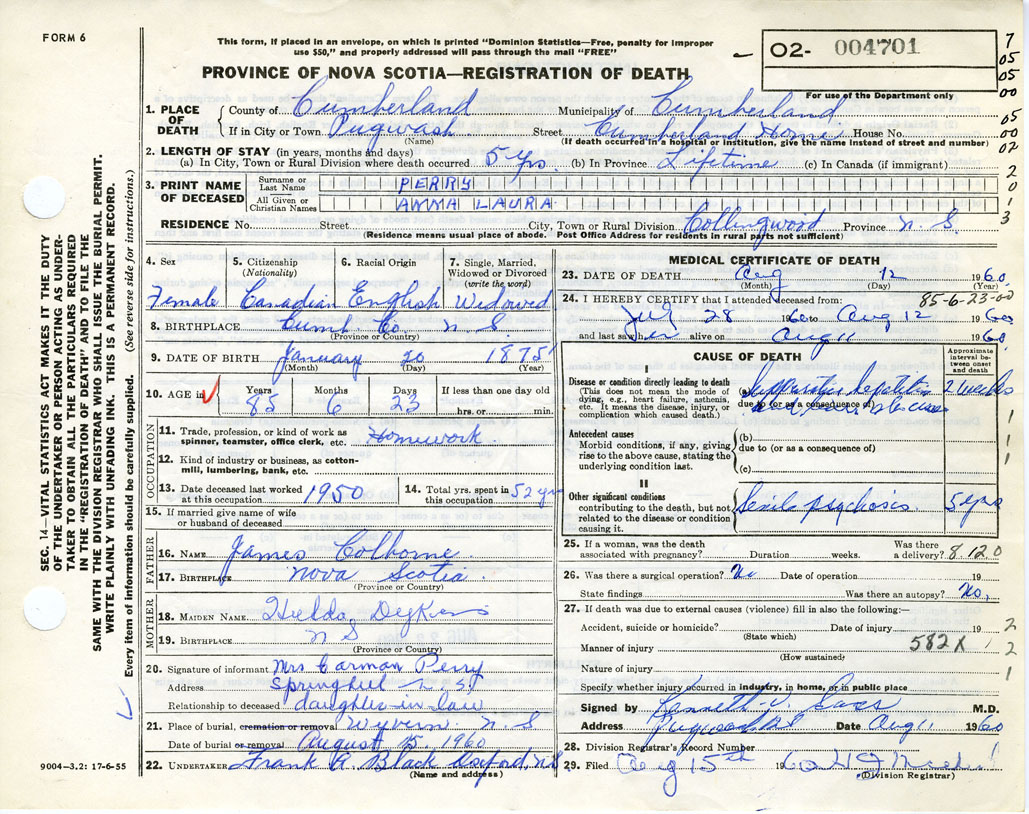 FORM 6
This form, if placed in an envelope, on which is printed "Dominion Statistics—Free, penalty for improper
use $50," and properly addressed will pass through the mail "FREE"
02- 004701
For use of the Department only
PROVINCE OF NOVA SCOTIA—REGISTRATION OF DEATH
7
05
05
00
05
00
02
2
0
1
3
SEC. 14—VITAL STATISTICS ACT MAKES IT THE DUTY
OF THE UNDERTAKER OR PERSON ACTING AS UNDER-
TAKER TO OBTAIN ALL THE PARTICULARS REQUIRED
IN THE "REGISTRATION OF DEATH" AND FILE THE
SAME WITH THE DIVISION REGISTRAR WHO SHALL ISSUE THE BURIAL PERMIT.
WRITE PLAINLY WITH UNFADING INK. THIS IS A PERMANENT RECORD.
Every item of information should be carefully supplied. (See reverse side for instructions.)
1. PLACE OF DEATH County of Cumberland Municipality of Cumberland
If in City or Town Pugwash Street Cumberland Home House No.
(Name) (If death occurred in a hospital or institution, give the name instead of street and number)
2. LENGTH OF STAY (in years, months and days)
(a) In City, Town or Rural Division where death occurred 5 yrs. (b) In Province Lifetime (c) In Canada (if immigrant)
3. PRINT NAME OF DECEASED Surname or Last Name PERRY
All Given or Christian Names ANNA LAURA
RESIDENCE No. Street City, Town or Rural Division Collingwood Province N. S.
(Residence means usual place of abode. Post Office Address for residents in rural parts not sufficient)
4. Sex 5. Citizenship (Nationality) 6. Racial Origin 7. Single, Married, Widowed or Divorced (write the word)
Female Canadian English Widowed
8. BIRTHPLACE Cumb. Co. N S
(Province or Country)
9. DATE OF BIRTH January 20 1875
(Month) (Day) (Year)
10. AGE in Years 85 Months 6 Days 23 If less than one day old hrs. or min.
OCCUPATION
11. Trade, profession, or kind of work as spinner, teamster, office clerk, etc. Homework.
12. Kind of industry or business, as cotton-mill, lumbering, bank, etc.
13. Date deceased last worked at this occupation 1950 14. Total yrs. spent in this occupation 52 yrs
15. If married give name of wife or husband of deceased
FATHER
16. NAME James Colborne
17. BIRTHPLACE Nova Scotia.
(Province or Country)
MOTHER
18. MAIDEN NAME Hulda
19. BIRTHPLACE N S
(Province or Country)
20. Signature of informant Mrs Carman Perry
Address Springhill N. S.
Relationship to deceased daughter-in law
21. Place of burial, cremation or removal Wyvern. N. S
Date of burial or removal August 15, 1960
22. UNDERTAKER Frank A. Black Oxford, NS
(Name and address)
9004—3.2: 17-6-55
MEDICAL CERTIFICATE OF DEATH
23. DATE OF DEATH Aug 12 1960
(Month) (Day) (Year)
24. I HEREBY CERTIFY that I attended deceased from: 85-6-23-00
July 28 1960 to Aug 12 1960
and last saw her alive on Aug 11 1960
CAUSE OF DEATH
Approximate interval between onset and death
I
Disease or condition directly leading to death
(This does not mean the mode of dying, e.g., heart failure, asthenia, etc. It means the disease, injury, or complication which caused death.)
(a) Suppurative hepatitis 2 weeks
due to (or as a consequence of)
1
1
1
1
Antecedent causes
Morbid conditions, if any, giving rise to the above cause, stating the underlying condition last.
(b)
due to (or as a consequence of)
(c)
II
Other significant conditions
contributing to the death, but not related to the disease or condition causing it.
Senile psychosis. 5 yrs
25. If a woman, was the death associated with pregnancy? Duration weeks. Was there a delivery? 8.120
26. Was there a surgical operation? No Date of operation 19
State findings Was there an autopsy? No.
27. If death was due to external causes (violence) fill in also the following:—
Accident, suicide or homicide? Date of injury 19
(State which)
Manner of injury 582X
(How sustained)
Nature of injury
2
1 2
1
Specify whether injury occurred in industry, in home, or in public place
Signed by Kenneth M.D.
Address Pugwash NS Date Aug 11 1960
28. Division Registrar's Record Number
29. Filed Aug 15th 1960
(Division Registrar)